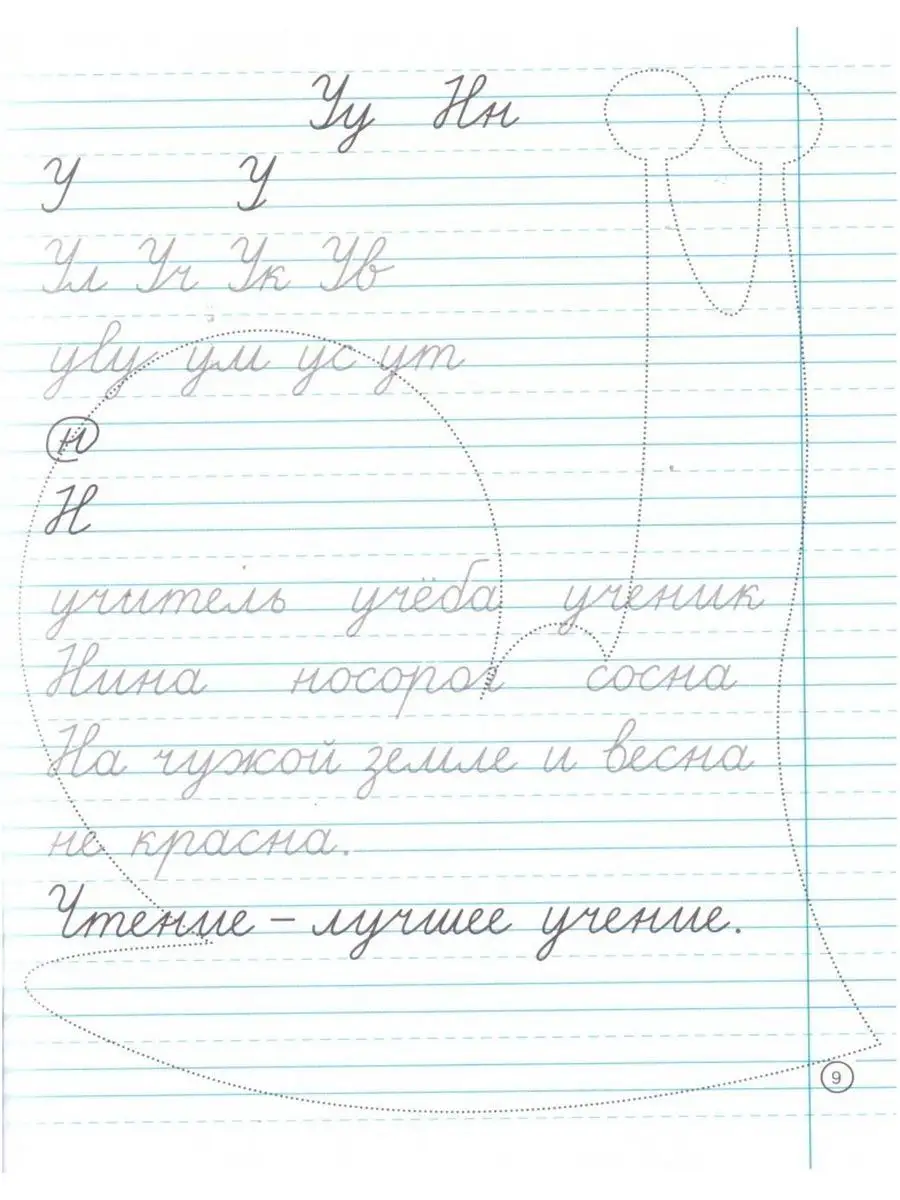 Уу Нн
У У
Ул Уч Ук Ув
уву ум ус ут
н
Н
учитель учёба ученик
Нина носорог сосна
На чужой земле и весна
не красна.
Чтение – лучшее учение.
9